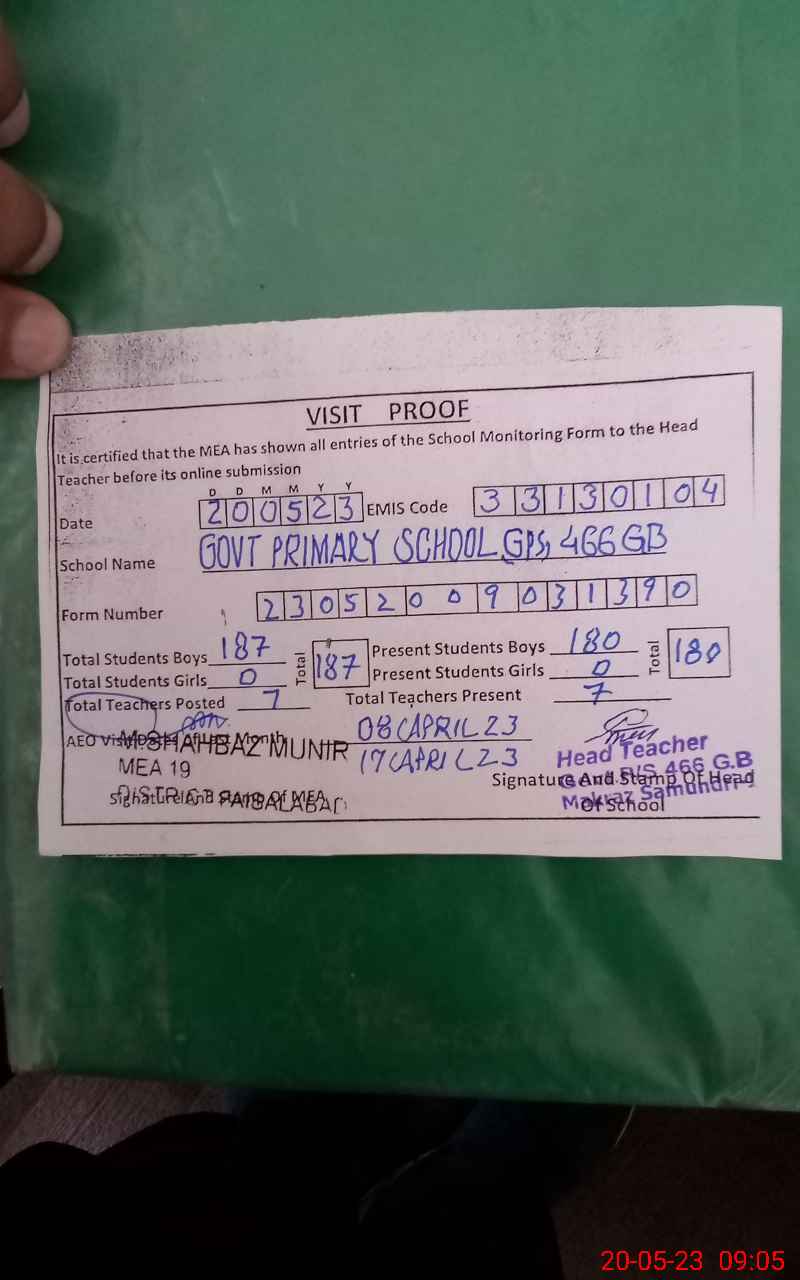 VISIT PROOF
It is certified that the MEA has shown all entries of the School Monitoring Form to the Head
Teacher before its online submission
D D M M Y Y
Date 200523 EMIS Code 33130104
School Name GOVT PRIMARY SCHOOL, GPS, 466 GB
Form Number 2305200903 1390
Total Students Boys 187 Total 187 Present Students Boys 180 Total 180
Total Students Girls 0 Present Students Girls 0
Total Teachers Posted 7 Total Teachers Present 7
AEO Visit Month 08 APRIL 23
17 APRIL 23
M. SHAHBAZ MUNIR
MEA 19
DISTRICT FAISALABAD
Signature And Stamp Of MEA
Head Teacher
Govt. P/S 466 G.B
Makraz Samundri-
Signature And Stamp Of Head
Of School
20-05-23 09:05